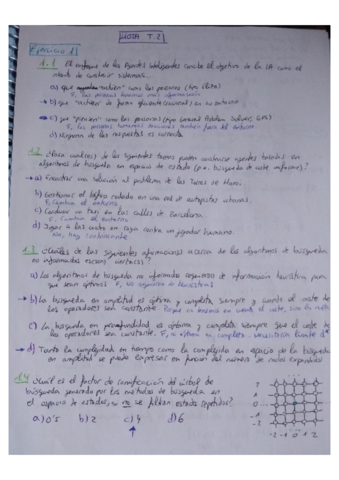 HOJA T.2
Ejercicio 1
1.1 El enfoque de los Agentes Inteligentes concibe el objetivo de la IA como el
intento de construir sistemas:
a) que actúen como las personas (tipo Eliza)
F, las personas
b) que "actúen" de forma eficiente (racional) en su entorno
c) que "piensen" como las personas (tipo General Problem Solver, GPS)
F, las personas humanas
d) Ninguna de las respuestas es correcta
1.2 ¿Para cuál(es) de las siguientes tareas pueden construirse agentes basados en
algoritmos de búsqueda en espacio de estados (p.e. búsqueda de coste uniforme)?
a) Encontrar una solución al problema de las Torres de Hanoi.
b) Gestionar el tráfico rodado en una red de autopistas urbanas.
F, Cambia el entorno
c) Conducir un taxi en las calles de Barcelona.
F, Cambia el entorno
d) Jugar a las cartas en contra un jugador humano
1.3 ¿Cuál(es) de las siguientes afirmaciones acerca de los algoritmos de búsqueda
no informados es(son) cierta(s)?
a) Los algoritmos de búsqueda no informados requieren de información heurística para
que sean óptimos F,
b) La búsqueda en amplitud es óptima y completa siempre y cuando el coste de
los operadores sea constante
c) La búsqueda en profundidad es óptima y completa siempre que el coste de
los operadores sea constante. F, ni óptima ni completa
d) Tanto la complejidad en tiempo como la complejidad en espacio de la búsqueda
en amplitud se puede expresar en función del número de nodos expandidos
1.4 ¿Cuál es el factor de ramificación del árbol de
búsqueda generado por los métodos de búsqueda en
el espacio de estados, si no se filtran estados repetidos?
a) 0'5 b) 2 c) 4 d) 6
2
1
0
-1
-2
-2 -1 0 1 2